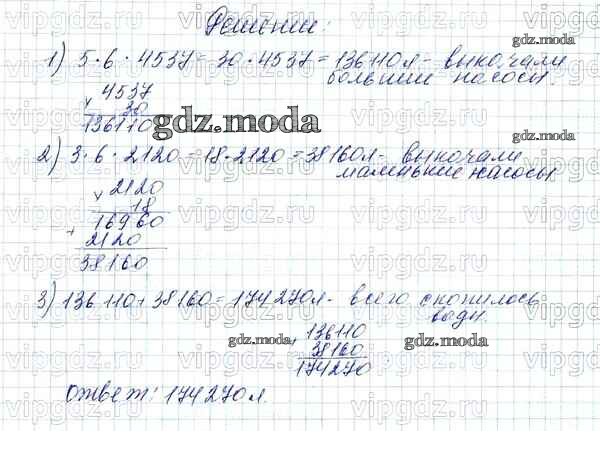 Решение:
gdz.moda
1) 5·6·4537=30·4537=136110л- выкачали
большие насосы.
4537
30
136110
gdz.moda
2) 3·6·2120=18·2120=38160л- выкачали
маленькие насосы
gdz.moda
2120
18
16960
+ 2120
38160
3) 136110+38160=174270л- всего скопилось
воды
136110
38160
174270
gdz.moda
gdz.moda
Ответ: 174270л.
vipgdz.ru